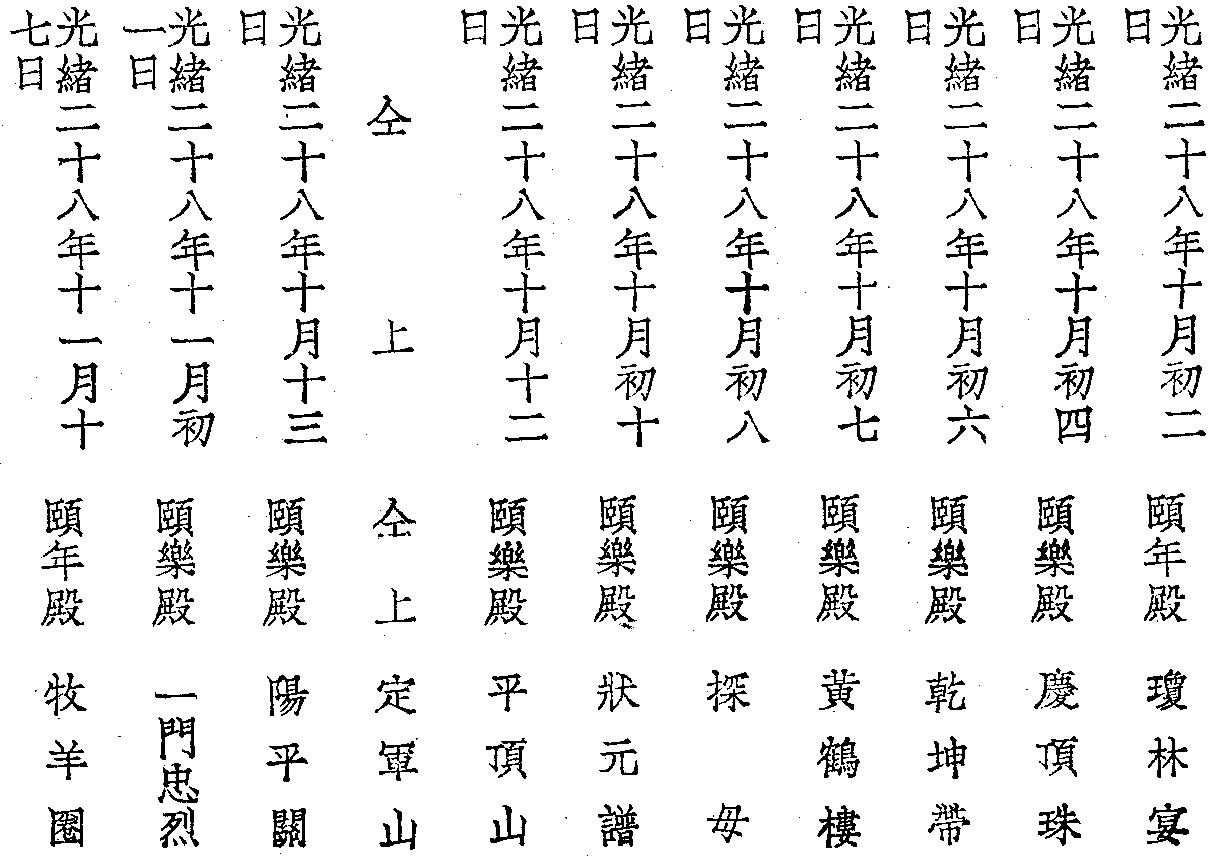 光緒二十八年十月初二日 頤年殿 瓊林宴
光緒二十八年十月初四日 頤樂殿 慶頂珠
光緒二十八年十月初六日 頤樂殿 乾坤帶
光緒二十八年十月初七日 頤樂殿 黃鶴樓
光緒二十八年十月初八日 頤樂殿 探母
光緒二十八年十月初十日 頤樂殿 狀元譜
光緒二十八年十月十二日 頤樂殿 平頂山
仝上 仝上 定軍山
光緒二十八年十月十三日 頤樂殿 陽平關
光緒二十八年十一月初一日 頤樂殿 一門忠烈
光緒二十八年十一月十七日 頤年殿 牧羊圈